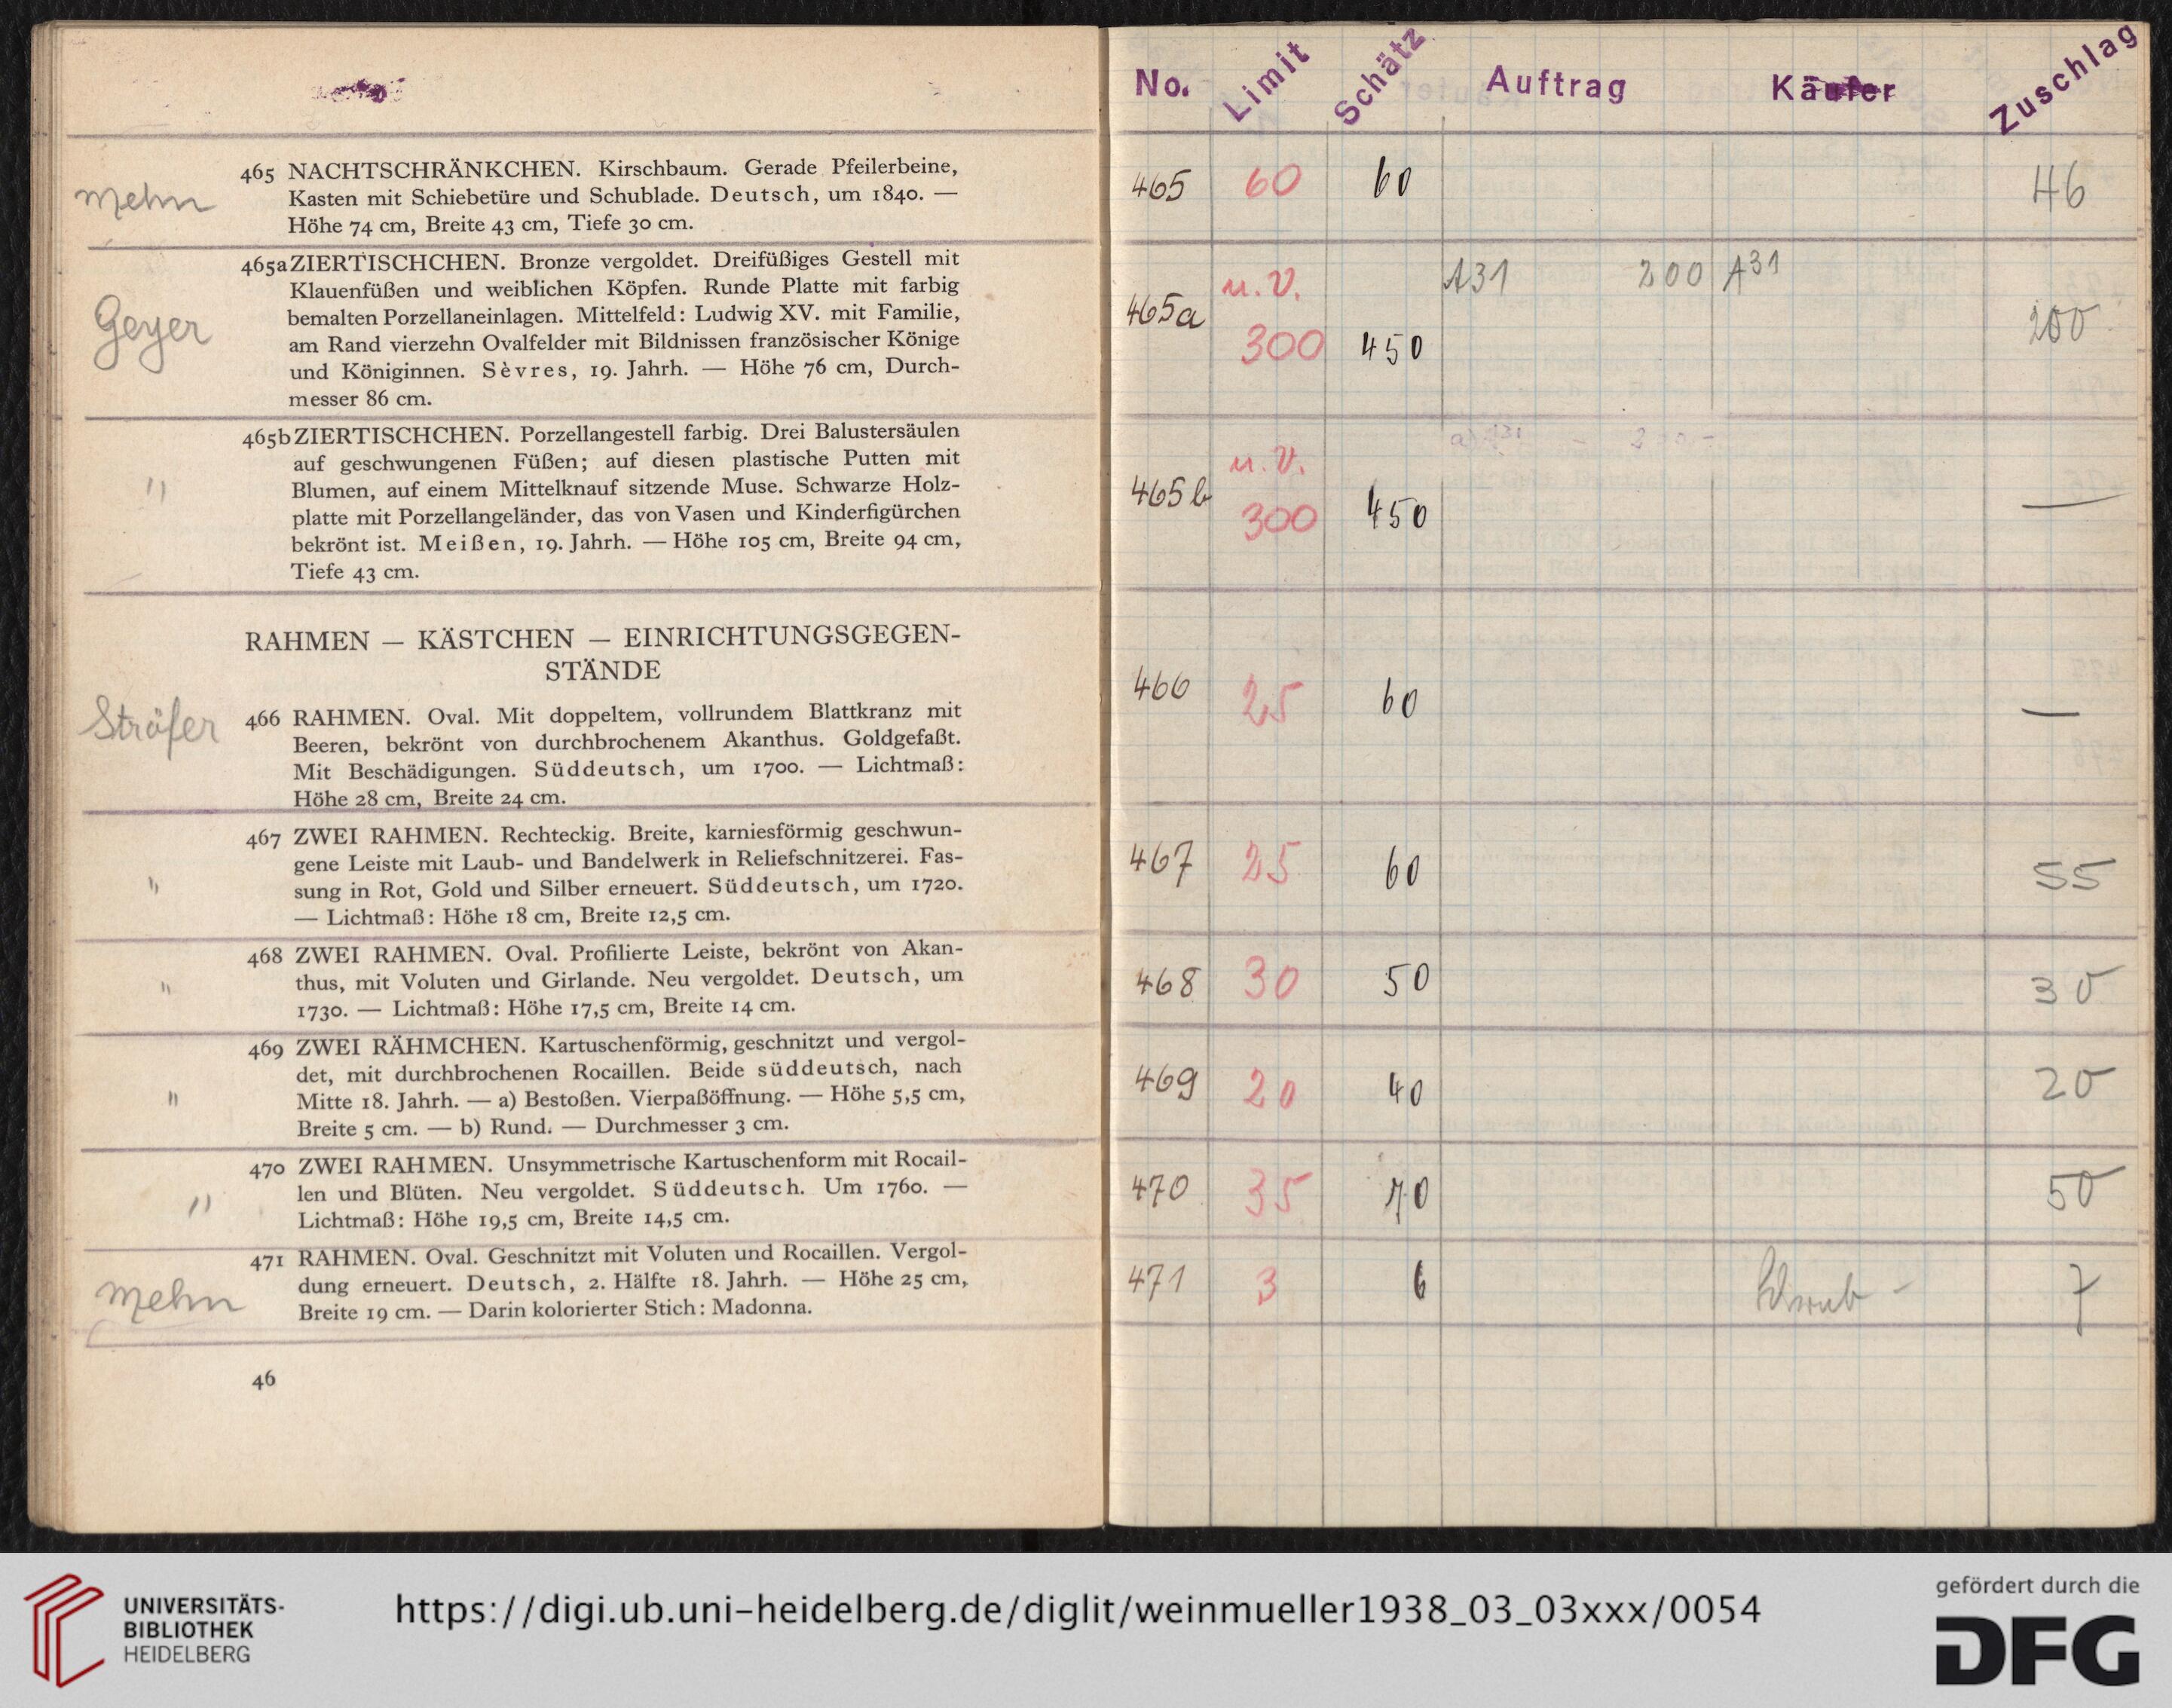 465 NACHTSCHRÄNKCHEN. Kirschbaum. Gerade Pfeilerbeine,
Kasten mit Schiebetüre und Schublade. Deutsch, um 1840. —
Höhe 74 cm, Breite 43 cm, Tiefe 30 cm.
Mehn
465a ZIERTISCHCHEN. Bronze vergoldet. Dreifüßiges Gestell mit
Klauenfüßen und weiblichen Köpfen. Runde Platte mit farbig
bemalten Porzellaneinlagen. Mittelfeld: Ludwig XV. mit Familie,
am Rand vierzehn Ovalfelder mit Bildnissen französischer Könige
und Königinnen. Sèvres, 19. Jahrh. — Höhe 76 cm, Durch-
messer 86 cm.
Geyer
465b ZIERTISCHCHEN. Porzellangestell farbig. Drei Balustersäulen
auf geschwungenen Füßen; auf diesen plastische Putten mit
Blumen, auf einem Mittelknauf sitzende Muse. Schwarze Holz-
platte mit Porzellangeländer, das von Vasen und Kinderfigürchen
bekrönt ist. Meißen, 19. Jahrh. — Höhe 105 cm, Breite 94 cm,
Tiefe 43 cm.
"
RAHMEN — KÄSTCHEN — EINRICHTUNGSGEGEN-
STÄNDE
Ströfer
466 RAHMEN. Oval. Mit doppeltem, vollrundem Blattkranz mit
Beeren, bekrönt von durchbrochenem Akanthus. Goldgefaßt.
Mit Beschädigungen. Süddeutsch, um 1700. — Lichtmaß:
Höhe 28 cm, Breite 24 cm.
467 ZWEI RAHMEN. Rechteckig. Breite, karniesförmig geschwun-
gene Leiste mit Laub- und Bandelwerk in Reliefschnitzerei. Fas-
sung in Rot, Gold und Silber erneuert. Süddeutsch, um 1720.
— Lichtmaß: Höhe 18 cm, Breite 12,5 cm.
"
468 ZWEI RAHMEN. Oval. Profilierte Leiste, bekrönt von Akan-
thus, mit Voluten und Girlande. Neu vergoldet. Deutsch, um
1730. — Lichtmaß: Höhe 17,5 cm, Breite 14 cm.
"
469 ZWEI RÄHMCHEN. Kartuschenförmig, geschnitzt und vergol-
det, mit durchbrochenen Rocaillen. Beide süddeutsch, nach
Mitte 18. Jahrh. — a) Bestoßen. Vierpaßöffnung. — Höhe 5,5 cm,
Breite 5 cm. — b) Rund. — Durchmesser 3 cm.
"
470 ZWEI RAHMEN. Unsymmetrische Kartuschenform mit Rocail-
len und Blüten. Neu vergoldet. Süddeutsch. Um 1760. —
Lichtmaß: Höhe 19,5 cm, Breite 14,5 cm.
"
471 RAHMEN. Oval. Geschnitzt mit Voluten und Rocaillen. Vergol-
dung erneuert. Deutsch, 2. Hälfte 18. Jahrh. — Höhe 25 cm,
Breite 19 cm. — Darin kolorierter Stich: Madonna.
Mehn
46
No. Limit Schätz Auftrag Käufer Zuschlag
465 60 60 46
465a u. V. 300 450 A31 200 A31 200
465b u. V. 300 450 —
466 25 60 —
467 25 60 55
468 30 50 30
469 20 40 20
470 35 70 50
471 3 6 7
UNIVERSITÄTS-
BIBLIOTHEK
HEIDELBERG
https://digi.ub.uni-heidelberg.de/diglit/weinmueller1938_03_03xxx/0054
gefördert durch die
DFG